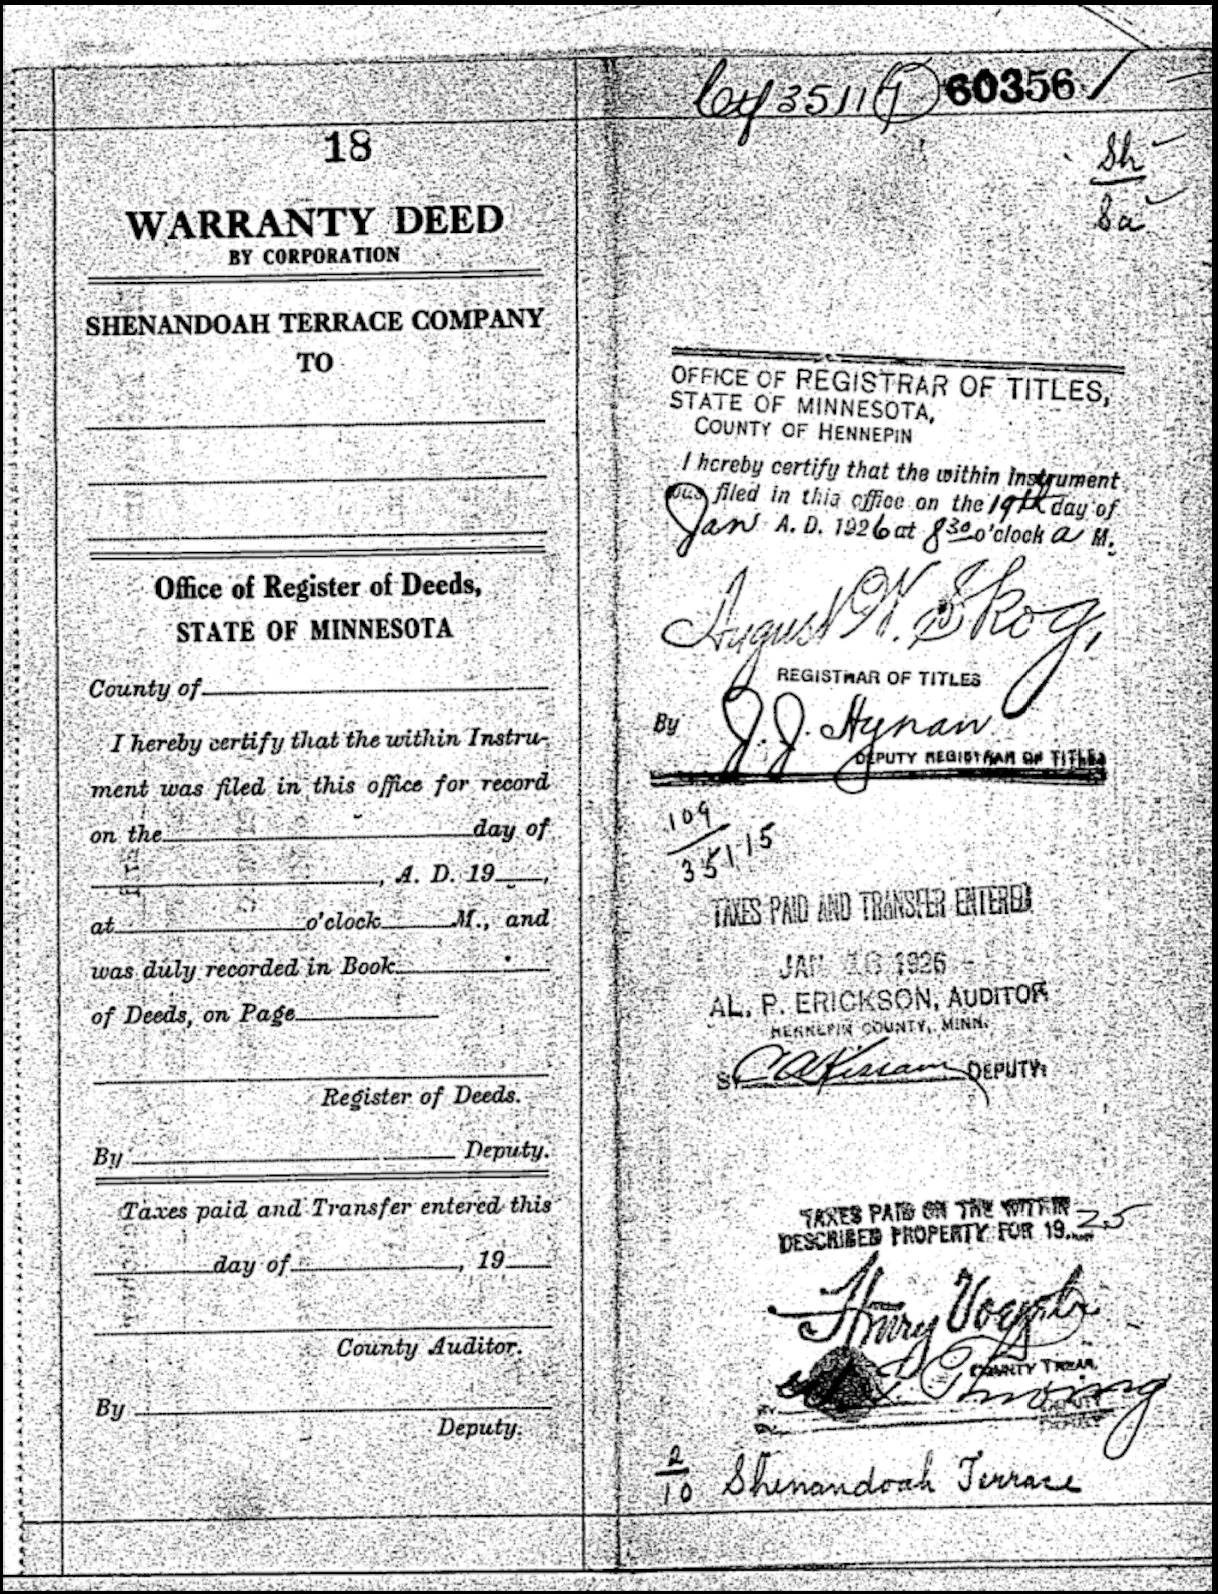 18
WARRANTY DEED
BY CORPORATION
SHENANDOAH TERRACE COMPANY
TO
Office of Register of Deeds,
STATE OF MINNESOTA
County of
I hereby certify that the within Instru-
ment was filed in this office for record
on the day of
, A. D. 19 ,
at o'clock M., and
was duly recorded in Book
of Deeds, on Page
Register of Deeds.
By Deputy.
Taxes paid and Transfer entered this
day of , 19
County Auditor.
By
Deputy.
60356
Sh
8a
OFFICE OF REGISTRAR OF TITLES,
STATE OF MINNESOTA,
COUNTY OF HENNEPIN
I hereby certify that the within Instrument
was filed in this office on the 19th day of
Jan A. D. 1926 at 830 o'clock a M.
August W. Skog,
REGISTRAR OF TITLES
By J. J. Hynan
DEPUTY REGISTRAR OF TITLES
109
35115
TAXES PAID AND TRANSFER ENTERED
JAN 16 1926
AL. P. ERICKSON, AUDITOR
HENNEPIN COUNTY, MINN.
BY DEPUTY
TAXES PAID ON THE WITHIN
DESCRIBED PROPERTY FOR 19 25
Henry
COUNTY TREAS.
BY DEPUTY
2
10 Shenandoah Terrace